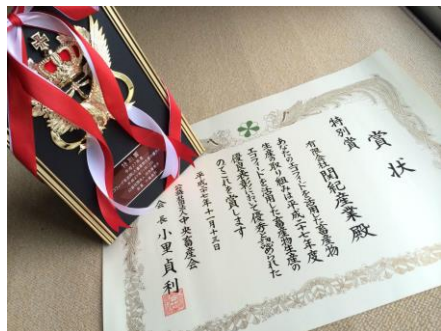 賞状
特別賞
有限会社関紀産業殿
あなたのエコフィードを活用した畜産物
生産の取り組みは平成二十七年度
エコフィードを活用した畜産物生産の
優良表彰において優秀と認められた
のでこれを賞します
平成二十七年十一月十三日
公益社団法人中央畜産会
会長 小里貞利
特別賞